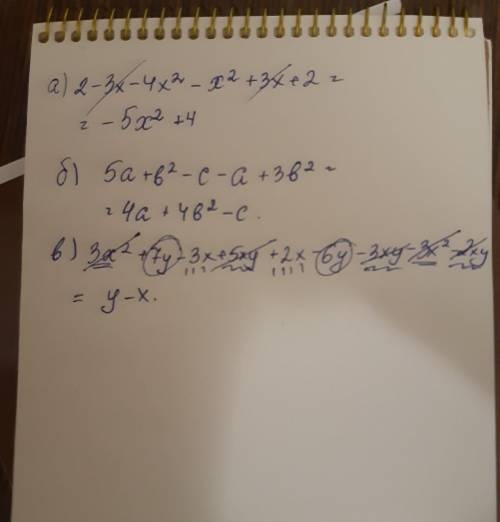 а) 2 - 3x - 4x² - x² + 3x + 2 =
= - 5x² + 4
б) 5a + b² - c - a + 3b² =
= 4a + 4b² - c.
в) 3x² + 7y - 3x + 5xy + 2x - 6y - 3xy - 3x² - 2xy
= y - x.